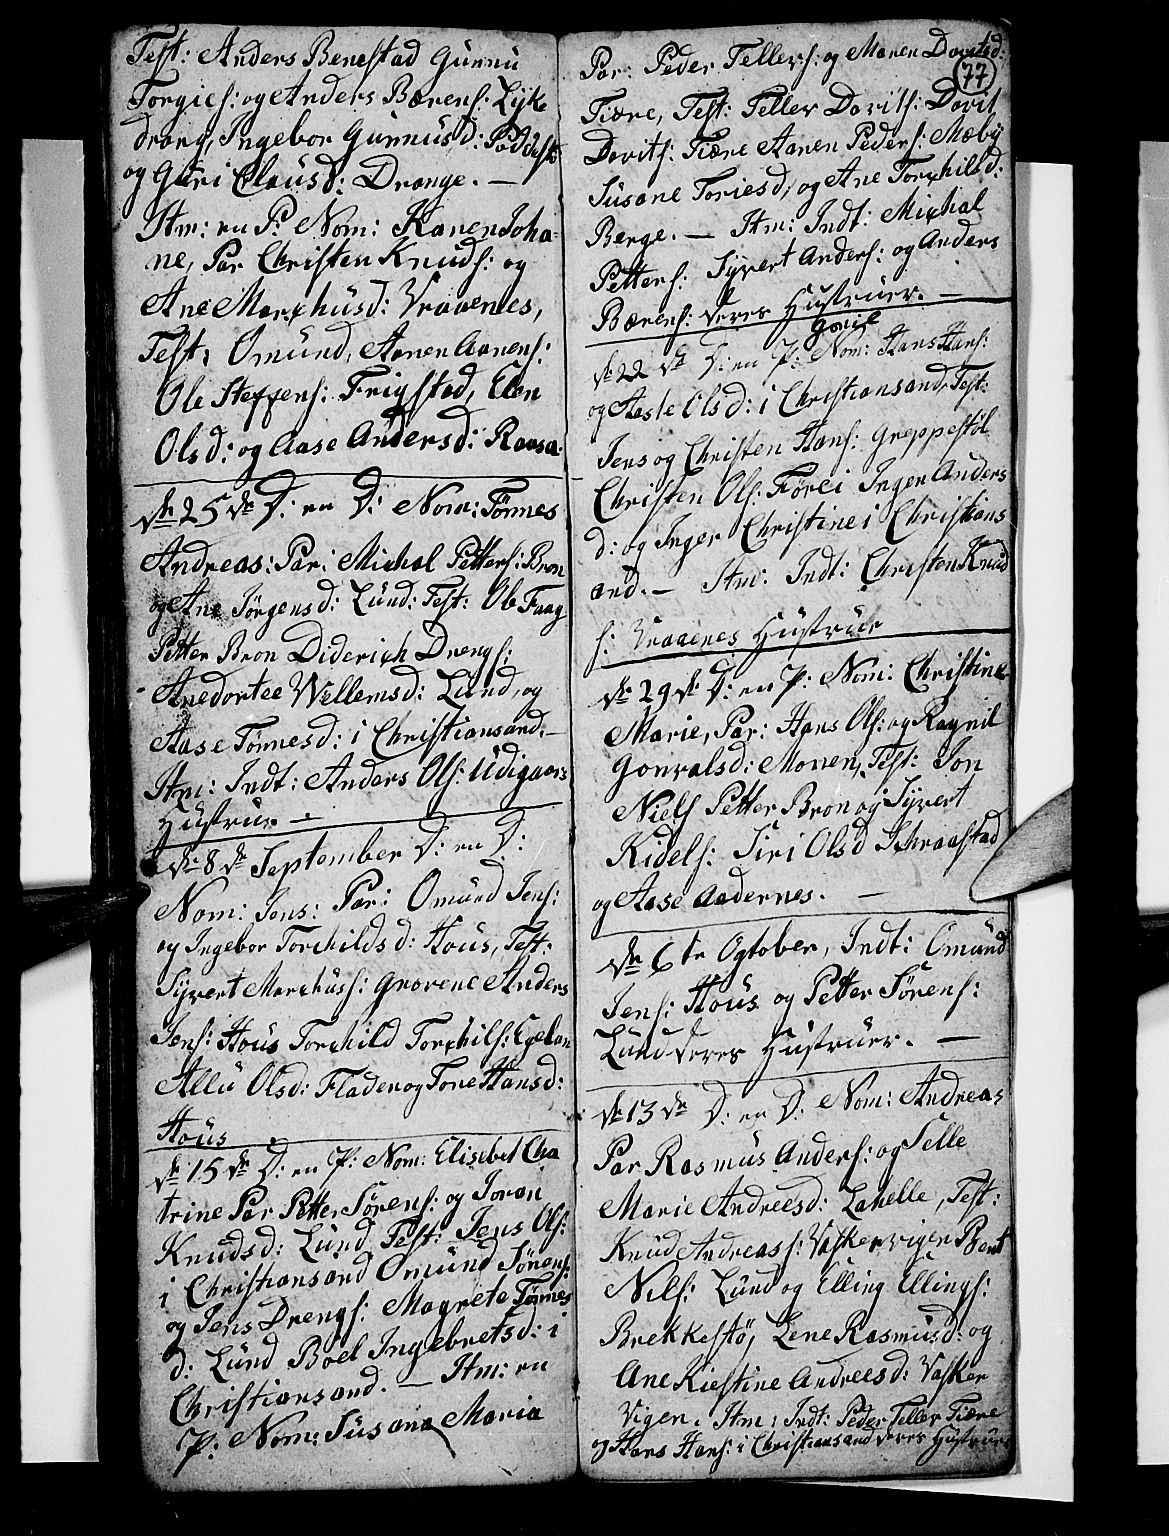 Test: Anders Benestad Gunnu
Torgies: og Anders Bærens: Lyke
drang, Ingebor Gunnusd:
og Guri Clausd: Drange. —
Itm: en P: Nom: Karen Joha
ne, Par Christen Knuds: og
Ane Marchusd: Vraaenes,
Test: Omund, Aanen Aanens:
Ole Steffens: Frigstad, Elen
Olsd: og Aase Andersd: Raasa.
dn 25 de D: en D: Nom: Tønnes
Andreas: Par: Michal Petters: Bron
og Ane Jørgensd: Lund: Test: Ole Faag
Petter Bron Diderich Drengs:
Anedortee Willemsd: Lund, og
Aase Tønnesd: i Christiansand. —
Itm: Indt: Anders Ols: Udigaars
Hustrue. —
dn 8 de September D: en D:
Nom: Jens: Par: Omund Jens:
og Ingebor Torchildsd: Hous, Test:
Syvert Marchuss: Grovene Anders
Jens: Hous Torchild Torchils: Egelan
Allu Olsd: Fladen og Tone Hansd:
Hous
dn 15 de D: en P: Nom: Elisebet Cha
trine Par Petter Sørens: og Joran
Knudsd: Lund Test: Jens Ols:
i Christiansand Omund Sørens:
og Jens Drengs: Magrete Tønnes
d: Lund Boel Ingebretsd: i
Christiansand. — Itm: en
P: Nom: Susana Maria
77
Par: Peder Tellers: og Maren Dovitsd:
Tiære, Test: Teller Dovits: Dovit
Dovits: Tiære Aanen Peders: Mæby
Susane Toriesd: og Ane Torchildsd:
Berge. — Itm: Indt: Michal
Petters: Syvert Anders: og Anders
Bærens: deres Hustruer. —
Goril
dn 22 de D: en P: Nom: Hans Hans:
og Aasle Olsd: i Christiansand, Test:
Jens og Christen Hans: Greppestøl
Christen Ols: Inger Anders
d: og Inger Christine i Christians
and. — Itm: Indt: Christen Knud
s: Vraaenes Hustrue
dn 29 de D: en P: Nom: Christine
Marie, Par: Hans Ols: og Ragnil
Gonvalsd: Monen, Test: Jon
Niels Petter Bron og Syvert
Kidels: Siri Olsd Schraastad
og Aase Aadernes. —
dn 6 te October, Indt: Omund
Jens: Hous og Petter Sørens:
Lund deres Hustruer. —
dn 13 de D: en D: Nom: Andreas
Par Rasmus Anders: og Selle
Marie Andreesd: Lahelle, Test:
Knud Andreass: Vaskervigen Bent
Nils: Lund og Elling Ellings:
Brekkestø, Lene Rasmusd: og
Ane Kiestine Andreesd: Vasker
Vigen. Itm: Indt: Peder Teller Tiære
og Hans Hans: i Christiansand deres Hustruer